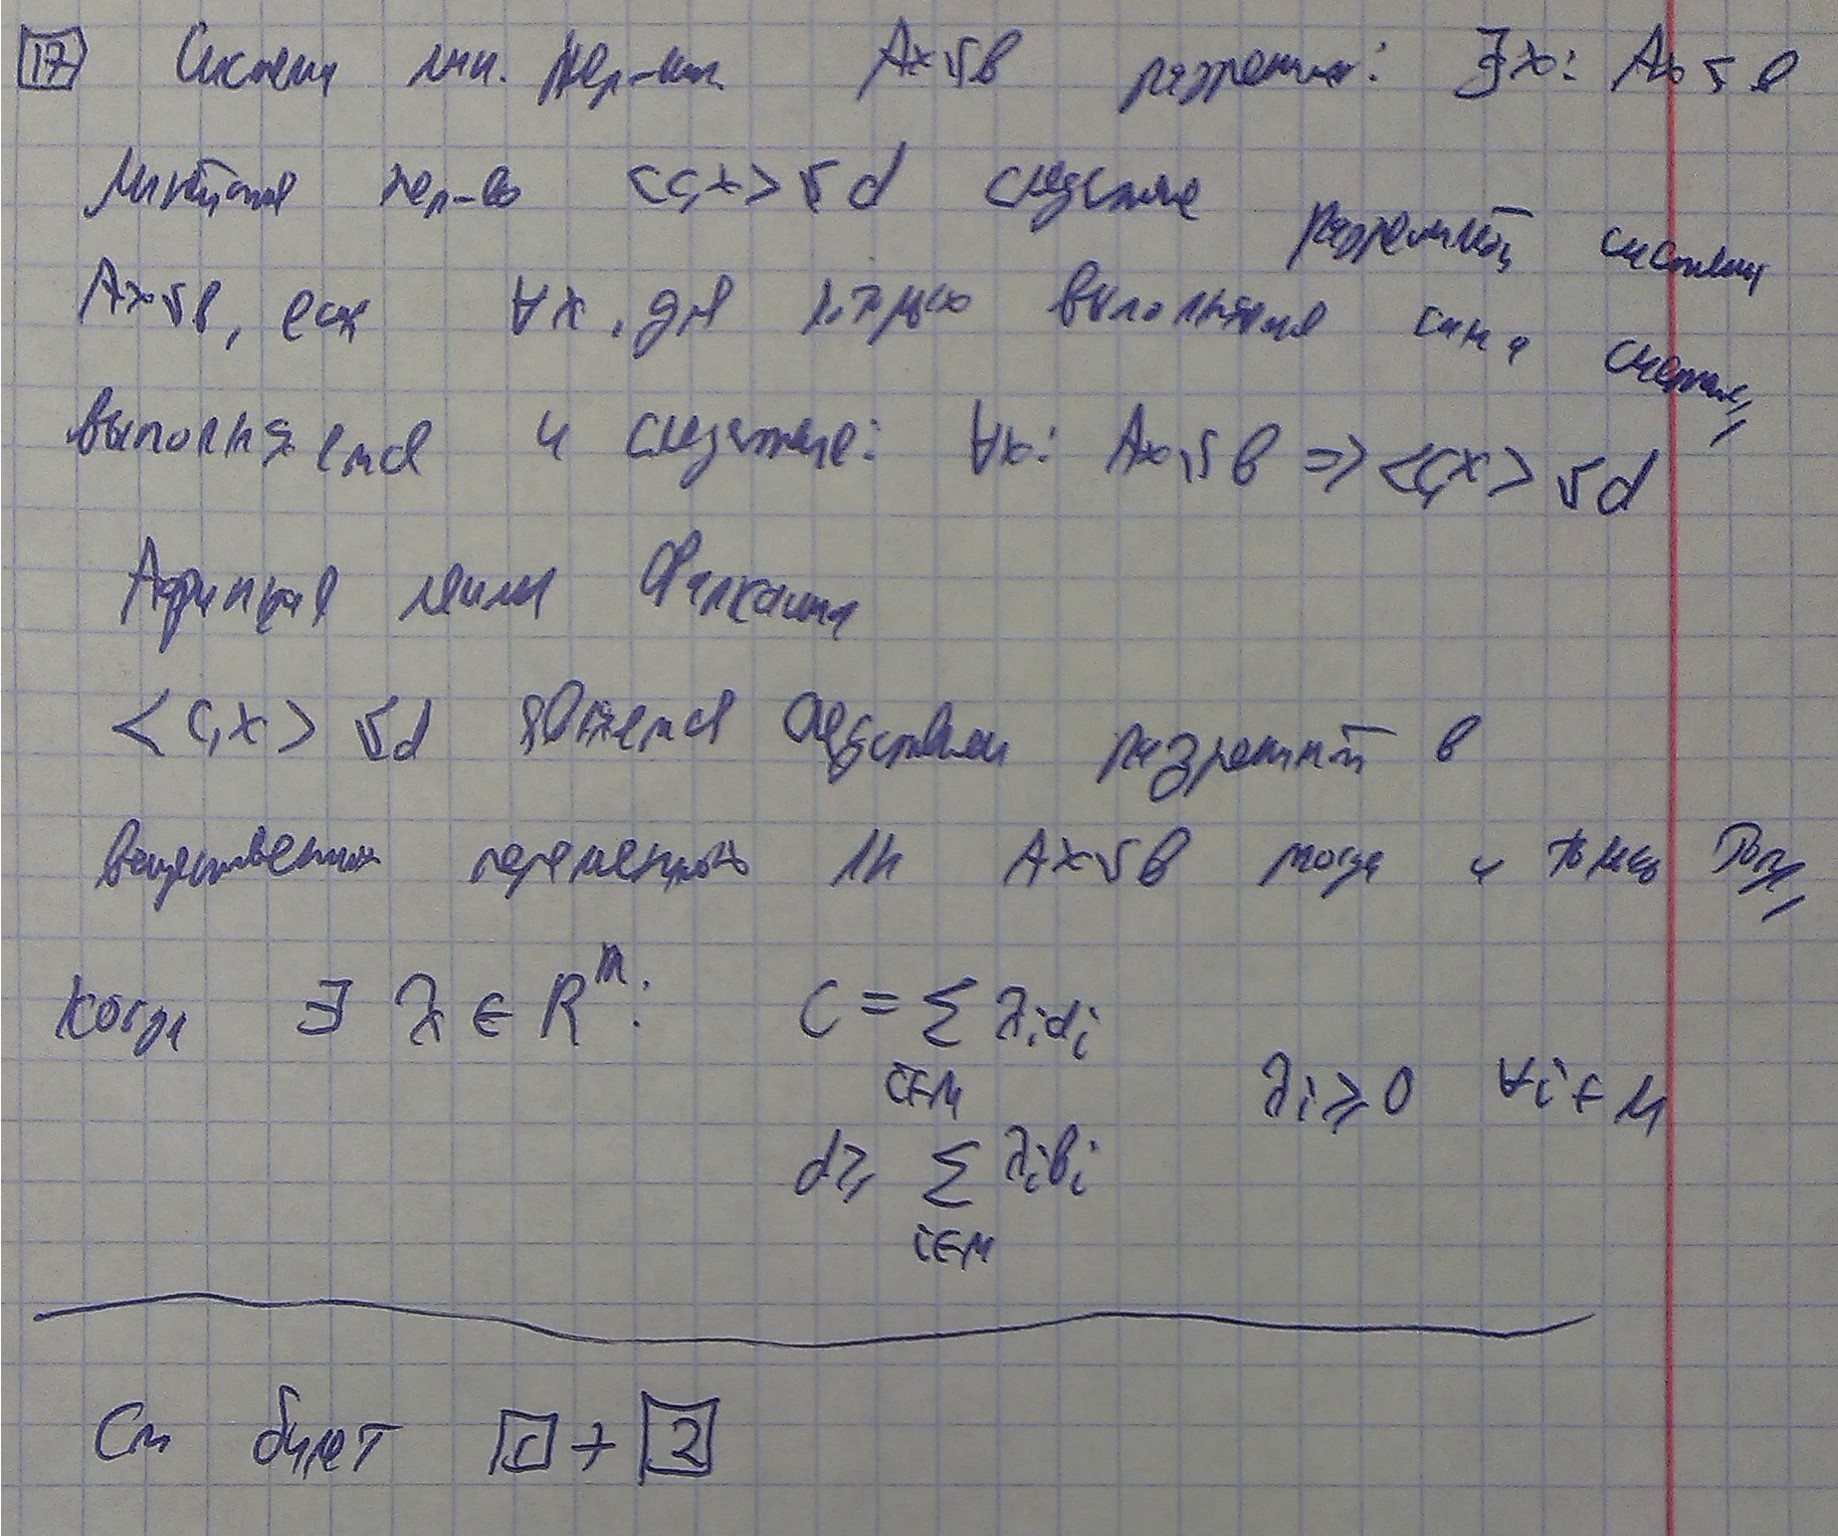 17 Система лин. нер-в Ax ≤ b разрешима: ∃x: Ax ≤ b
Линейное нер-во <c,x> ≤ d следствие разрешимой системы
Ax ≤ b, если ∀x, для которых выполняется система,
выполняется и следствие: ∀x: Ax ≤ b => <c,x> ≤ d
Афинная лемма Фаркаша
<c,x> ≤ d является следствием разрешимой в
вещественных переменных ЛН Ax ≤ b тогда и только тогда,
когда ∃ λ ∈ R^m: c = Σ λ_i a_i
i∈M
λ_i ≥ 0 ∀i ∈ M
d ≥ Σ λ_i b_i
i∈M
См билет + 2